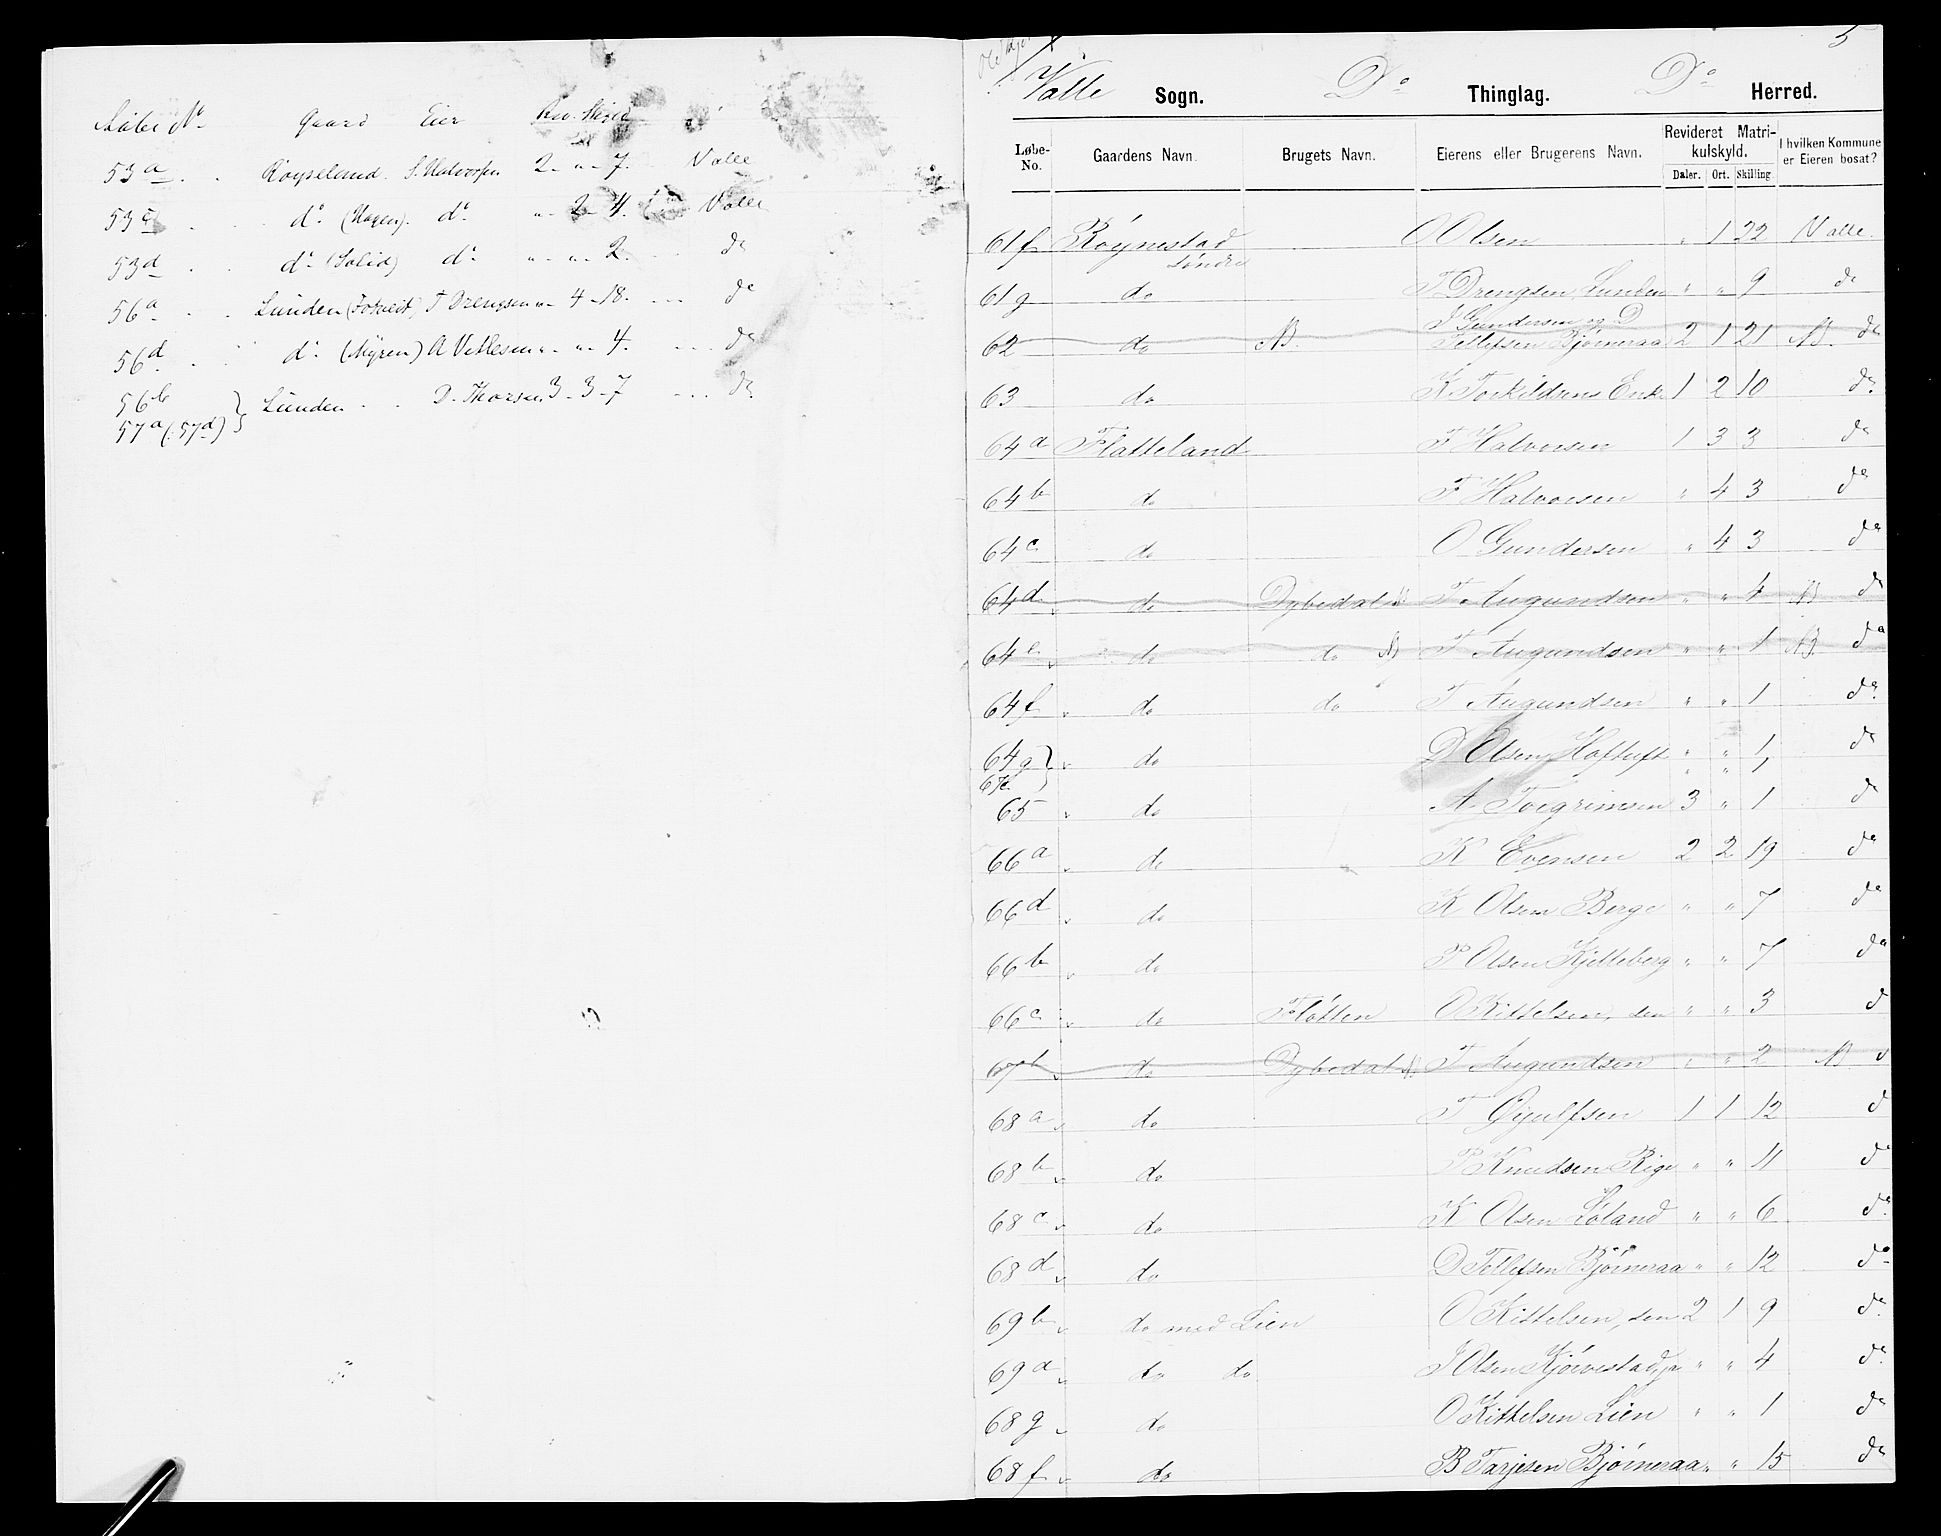 Løbe No Gaard Eier Rev. Skyld
53a Röyseland S. Halvorsen 2 - " - 7. Valle
53c do (Hagen) do " - 2 - 4. Valle
53d do (Solid) do " - " - 2 do
56a Lunden T Drengsen " - 4 - 18. do
56d do (Myren) A Vetlesen " - " - 4. do
56b
57a (57d) } Lunden D. Thorsen 3 - 3 - 7 do
5
Valle Sogn. Do Thinglag. Do Herred.
Løbe-No. Gaardens Navn. Brugets Navn. Eierens eller Brugerens Navn. Revideret Matrikulskyld. I hvilken Kommune er Eieren bosat?
Daler. Ort. Skilling
61f Röynestad søndre O Olsen " 1 22 Valle.
61g do T Drengsen Lunden " " 9 do
62 do N. J Gundersen og D Tellefsen Bjørneraa 2 1 21 N. do
63 do K Torkildsens Enke 1 2 10 do
64a Flatteland T Halvorsen 1 3 3 do
64b do T Halvorsen " 4 3 do
64c do O Gundersen " 4 3 do
64d do Dybedal N T Augundsen " " 4 N do
64e do do N T Augundsen " " 1 N. do
64f do do T Augundsen " " 1 do
64g } do D Olsen Hoftuft " " 1 do
" " 1
65 do A Torgrimsen 3 " 1 do
66a do K Evensen 2 2 19 do
66d do K Olsen Berge " " 7 do
66b do P Olsen Kjelleberg " " 7 do
66c do Fløtten O Kittelsen, sen " " 3 d
67b do Dybedal N T Augundsen " " 2 N d
68a do T Gjulfsen 1 1 12 d
68b do P Knudsen Rige " " 11 do
68c do K Olsen Løland " " 6 do
68d do D Tellefsen Bjørneraa " " 12 do
69b do med Lien O Kittelsen, sen 2 1 9 do
69a do do J Olsen Kjørvestad, jr " " 4 do
68g do O Kittelsen Lien " " 1 do
68f do B Tarjesen Bjørneraa " " 15 do